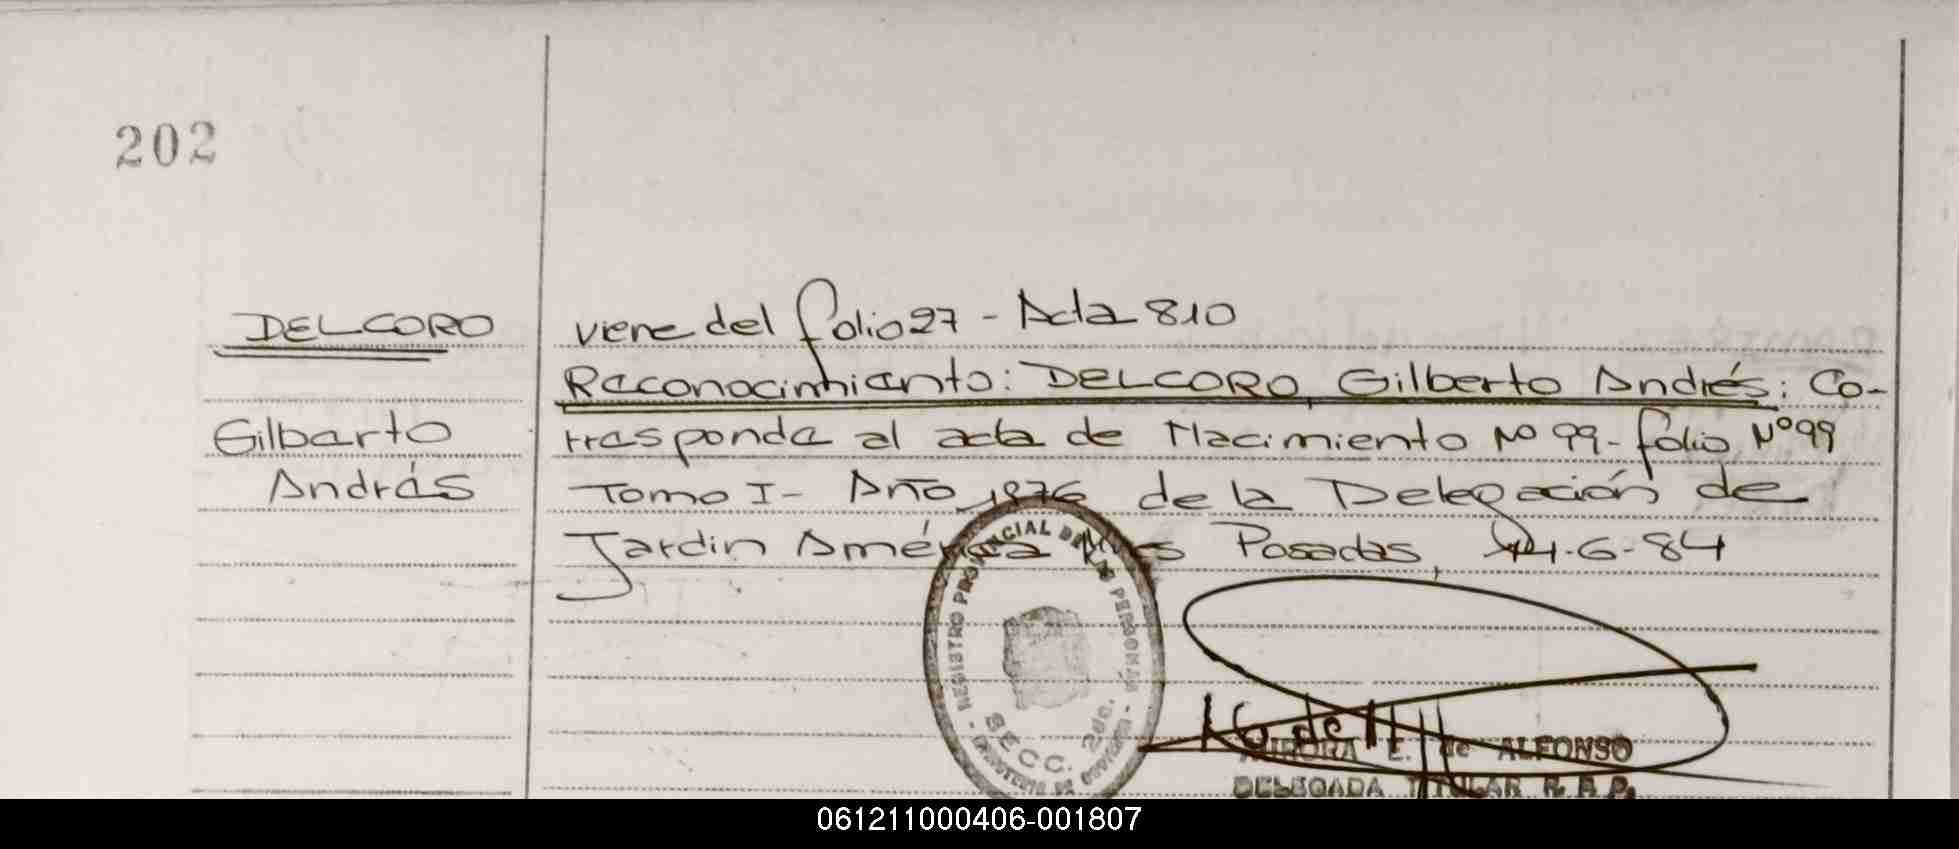 202
DELCORO
Gilberto
Andrés
viene del folio 27 - Acta 810
Reconocimiento: DELCORO, Gilberto Andrés: Co-
rresponde al acta de Nacimiento Nº 99 - folio Nº 99
Tomo I - Año 1976 de la Delegación de
Jardin América Mnes Posadas, 14-6-84
REGISTRO PROVINCIAL DE LAS PERSONAS
SECC. 2da.
AURORA E. de ALFONSO
DELEGADA TITULAR R. P. P.
061211000406-001807